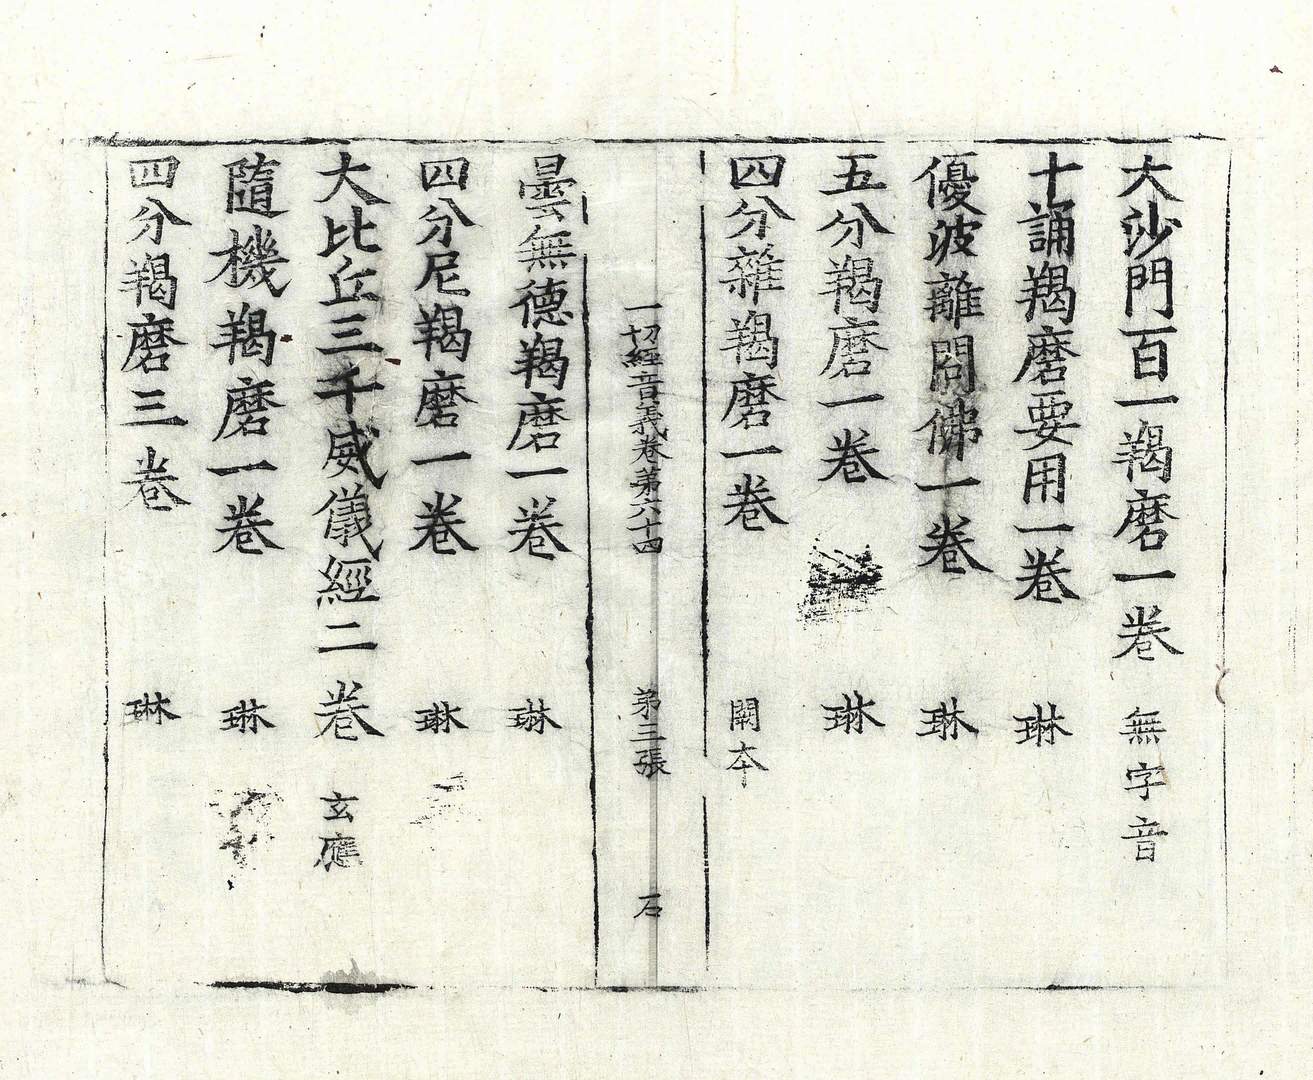 大沙門百一羯磨一卷 無字音
十誦羯磨要用一卷 琳
優波離問佛一卷 琳
五分羯磨一卷 琳
四分雜羯磨一卷 闕本
一切經音義卷第六十四 第三張 石
曇無德羯磨一卷 琳
四分尼羯磨一卷 琳
大比丘三千威儀經二卷 玄應
隨機羯磨一卷 琳
四分羯磨三卷 琳